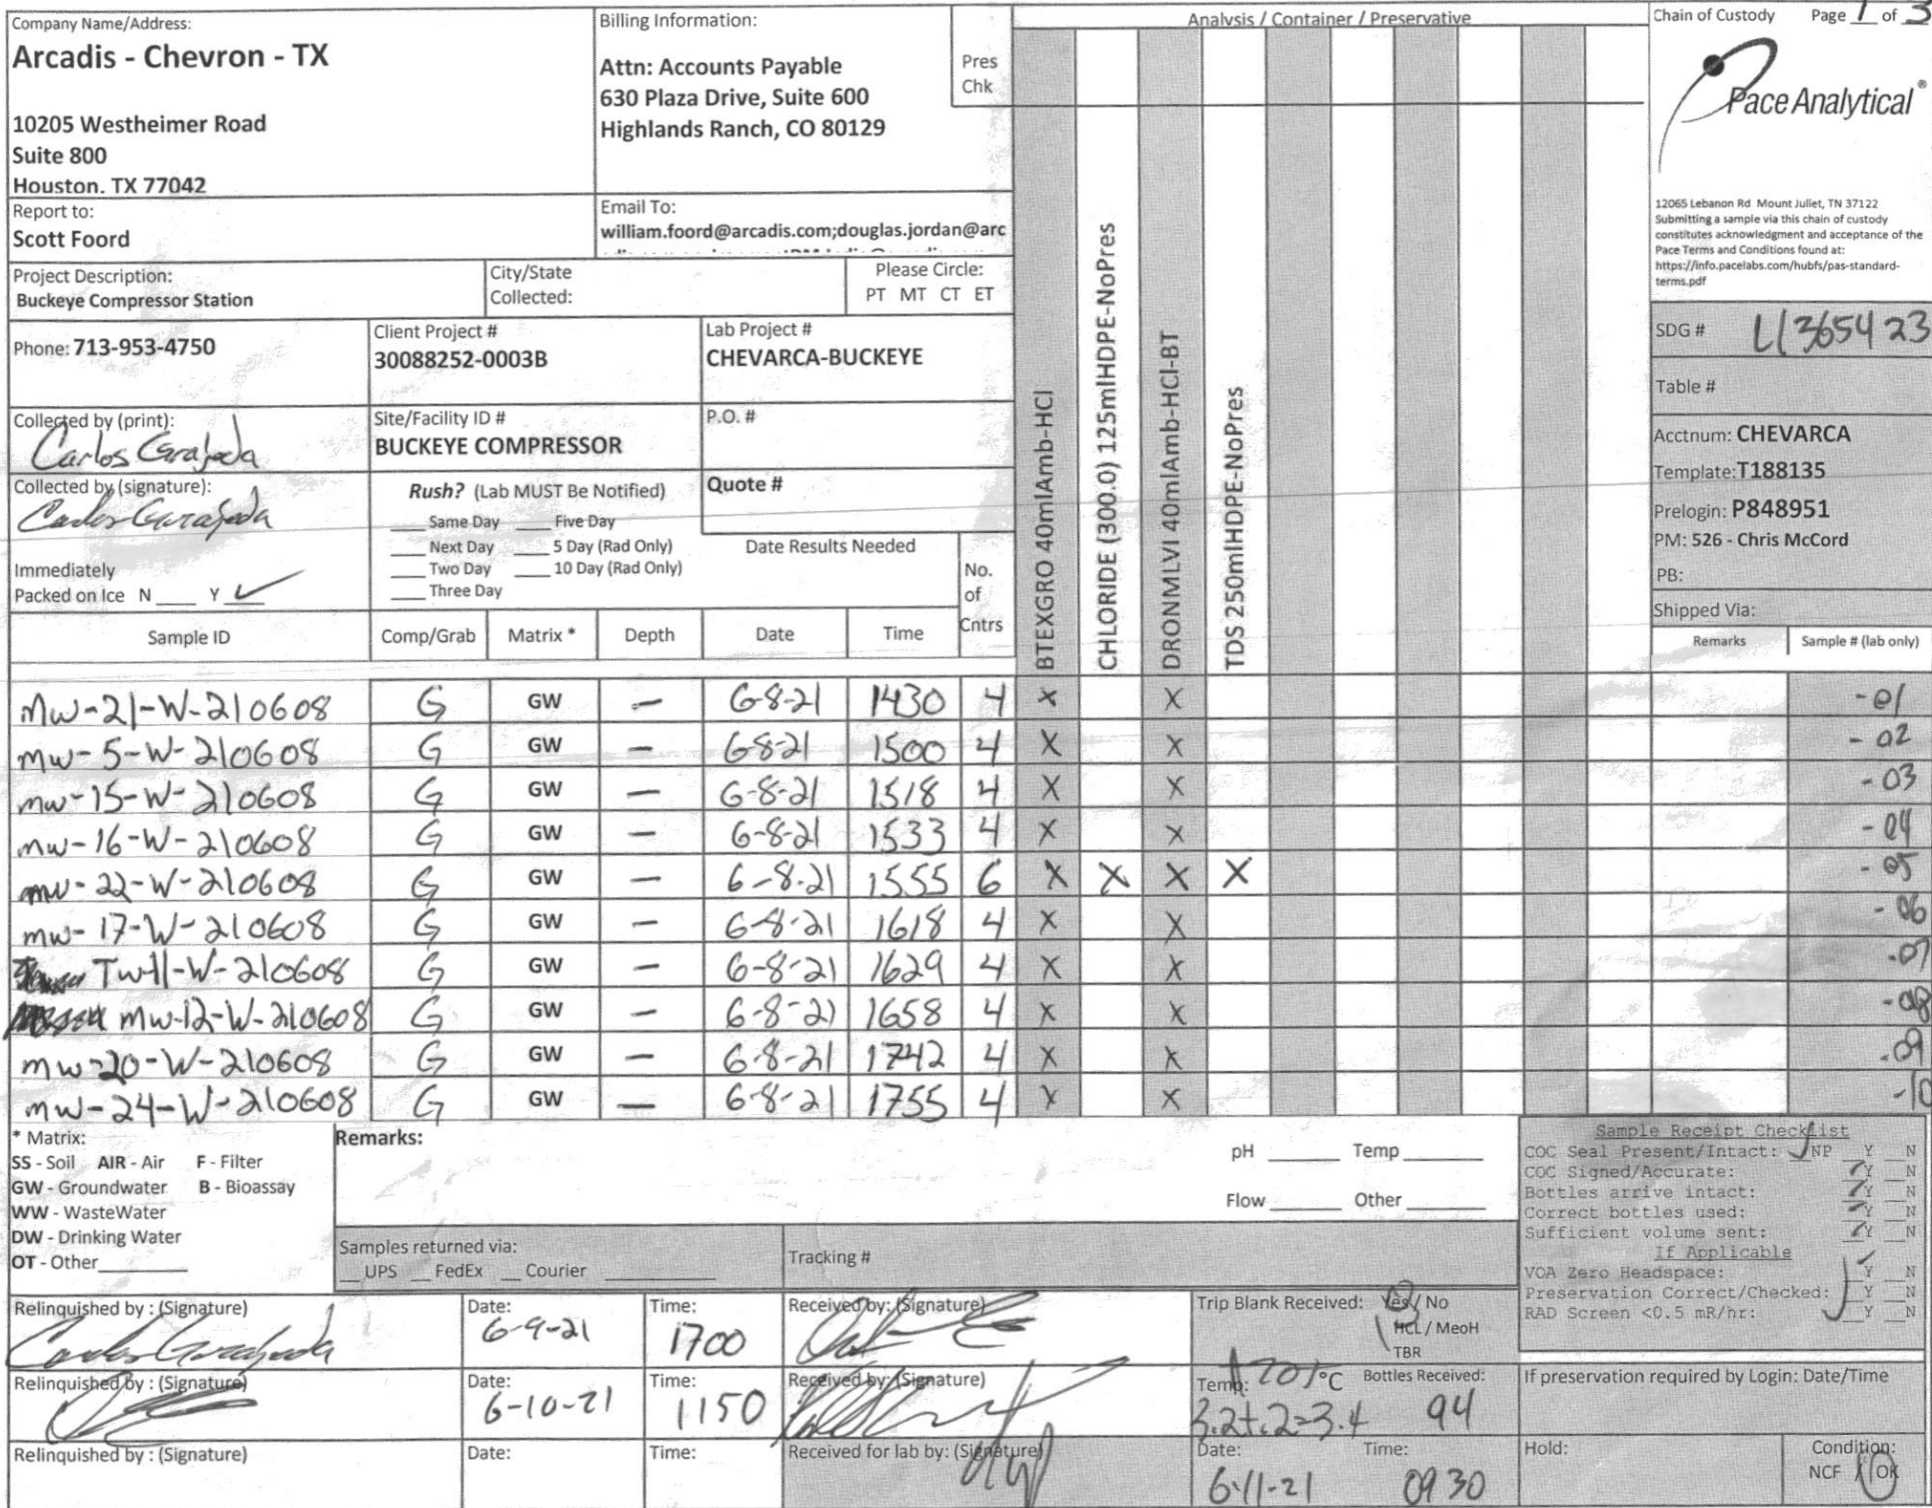 Company Name/Address:
Arcadis - Chevron - TX
10205 Westheimer Road
Suite 800
Houston, TX 77042
Billing Information:
Attn: Accounts Payable
630 Plaza Drive, Suite 600
Highlands Ranch, CO 80129
Pres
Chk
Analysis / Container / Preservative
Chain of Custody Page 1 of 3
Pace Analytical®
12065 Lebanon Rd Mount Juliet, TN 37122
Submitting a sample via this chain of custody
constitutes acknowledgment and acceptance of the
Pace Terms and Conditions found at:
https://info.pacelabs.com/hubfs/pas-standard-
terms.pdf
Report to:
Scott Foord
Email To:
william.foord@arcadis.com;douglas.jordan@arc
Project Description:
Buckeye Compressor Station
City/State
Collected:
Please Circle:
PT MT CT ET
Phone: 713-953-4750
Client Project #
30088252-0003B
Lab Project #
CHEVARCA-BUCKEYE
Collected by (print):
Carlos Grajeda
Site/Facility ID #
BUCKEYE COMPRESSOR
P.O. #
Collected by (signature):
Rush? (Lab MUST Be Notified)
___ Same Day ___ Five Day
___ Next Day ___ 5 Day (Rad Only)
___ Two Day ___ 10 Day (Rad Only)
___ Three Day
Quote #
Date Results Needed
Immediately
Packed on Ice N ___ Y ✓
No.
of
Cntrs
BTEXGRO 40mlAmb-HCl
CHLORIDE (300.0) 125mlHDPE-NoPres
DRONMLVI 40mlAmb-HCl-BT
TDS 250mlHDPE-NoPres
SDG # L1365423
Table #
Acctnum: CHEVARCA
Template: T188135
Prelogin: P848951
PM: 526 - Chris McCord
PB:
Shipped Via:
Sample ID Comp/Grab Matrix * Depth Date Time Remarks Sample # (lab only)
MW-21-W-210608 G GW — 6-8-21 1430 4 X X -01
MW-5-W-210608 G GW — 6-8-21 1500 4 X X -02
MW-15-W-210608 G GW — 6-8-21 1518 4 X X -03
MW-16-W-210608 G GW — 6-8-21 1533 4 X X -04
MW-22-W-210608 G GW — 6-8-21 1555 6 X X X X -05
MW-17-W-210608 G GW — 6-8-21 1618 4 X X -06
TW-11-W-210608 G GW — 6-8-21 1629 4 X X -07
MW-12-W-210608 G GW — 6-8-21 1658 4 X X -08
MW-20-W-210608 G GW — 6-8-21 1742 4 X X -09
MW-24-W-210608 G GW — 6-8-21 1755 4 X X -10
* Matrix:
SS - Soil AIR - Air F - Filter
GW - Groundwater B - Bioassay
WW - WasteWater
DW - Drinking Water
OT - Other
Remarks:
pH ___ Temp ___
Flow ___ Other ___
Samples returned via:
__ UPS __ FedEx __ Courier
Tracking #
Sample Receipt Checklist
COC Seal Present/Intact: ✓ NP _Y _N
COC Signed/Accurate: ✓Y _N
Bottles arrive intact: ✓Y _N
Correct bottles used: ✓Y _N
Sufficient volume sent: ✓Y _N
If Applicable
VOA Zero Headspace: ✓Y _N
Preservation Correct/Checked: _Y _N
RAD Screen <0.5 mR/hr: ✓Y _N
Relinquished by : (Signature)
Date: 6-9-21
Time: 1700
Received by: (Signature)
Trip Blank Received: Yes / No
HCL / MeoH
TBR
Relinquished by : (Signature)
Date: 6-10-21
Time: 1150
Received by: (Signature)
Temp: °C Bottles Received:
3.2+.2=3.4 94
If preservation required by Login: Date/Time
Relinquished by : (Signature)
Date:
Time:
Received for lab by: (Signature)
Date: 6-11-21
Time: 0930
Hold:
Condition:
NCF / OK